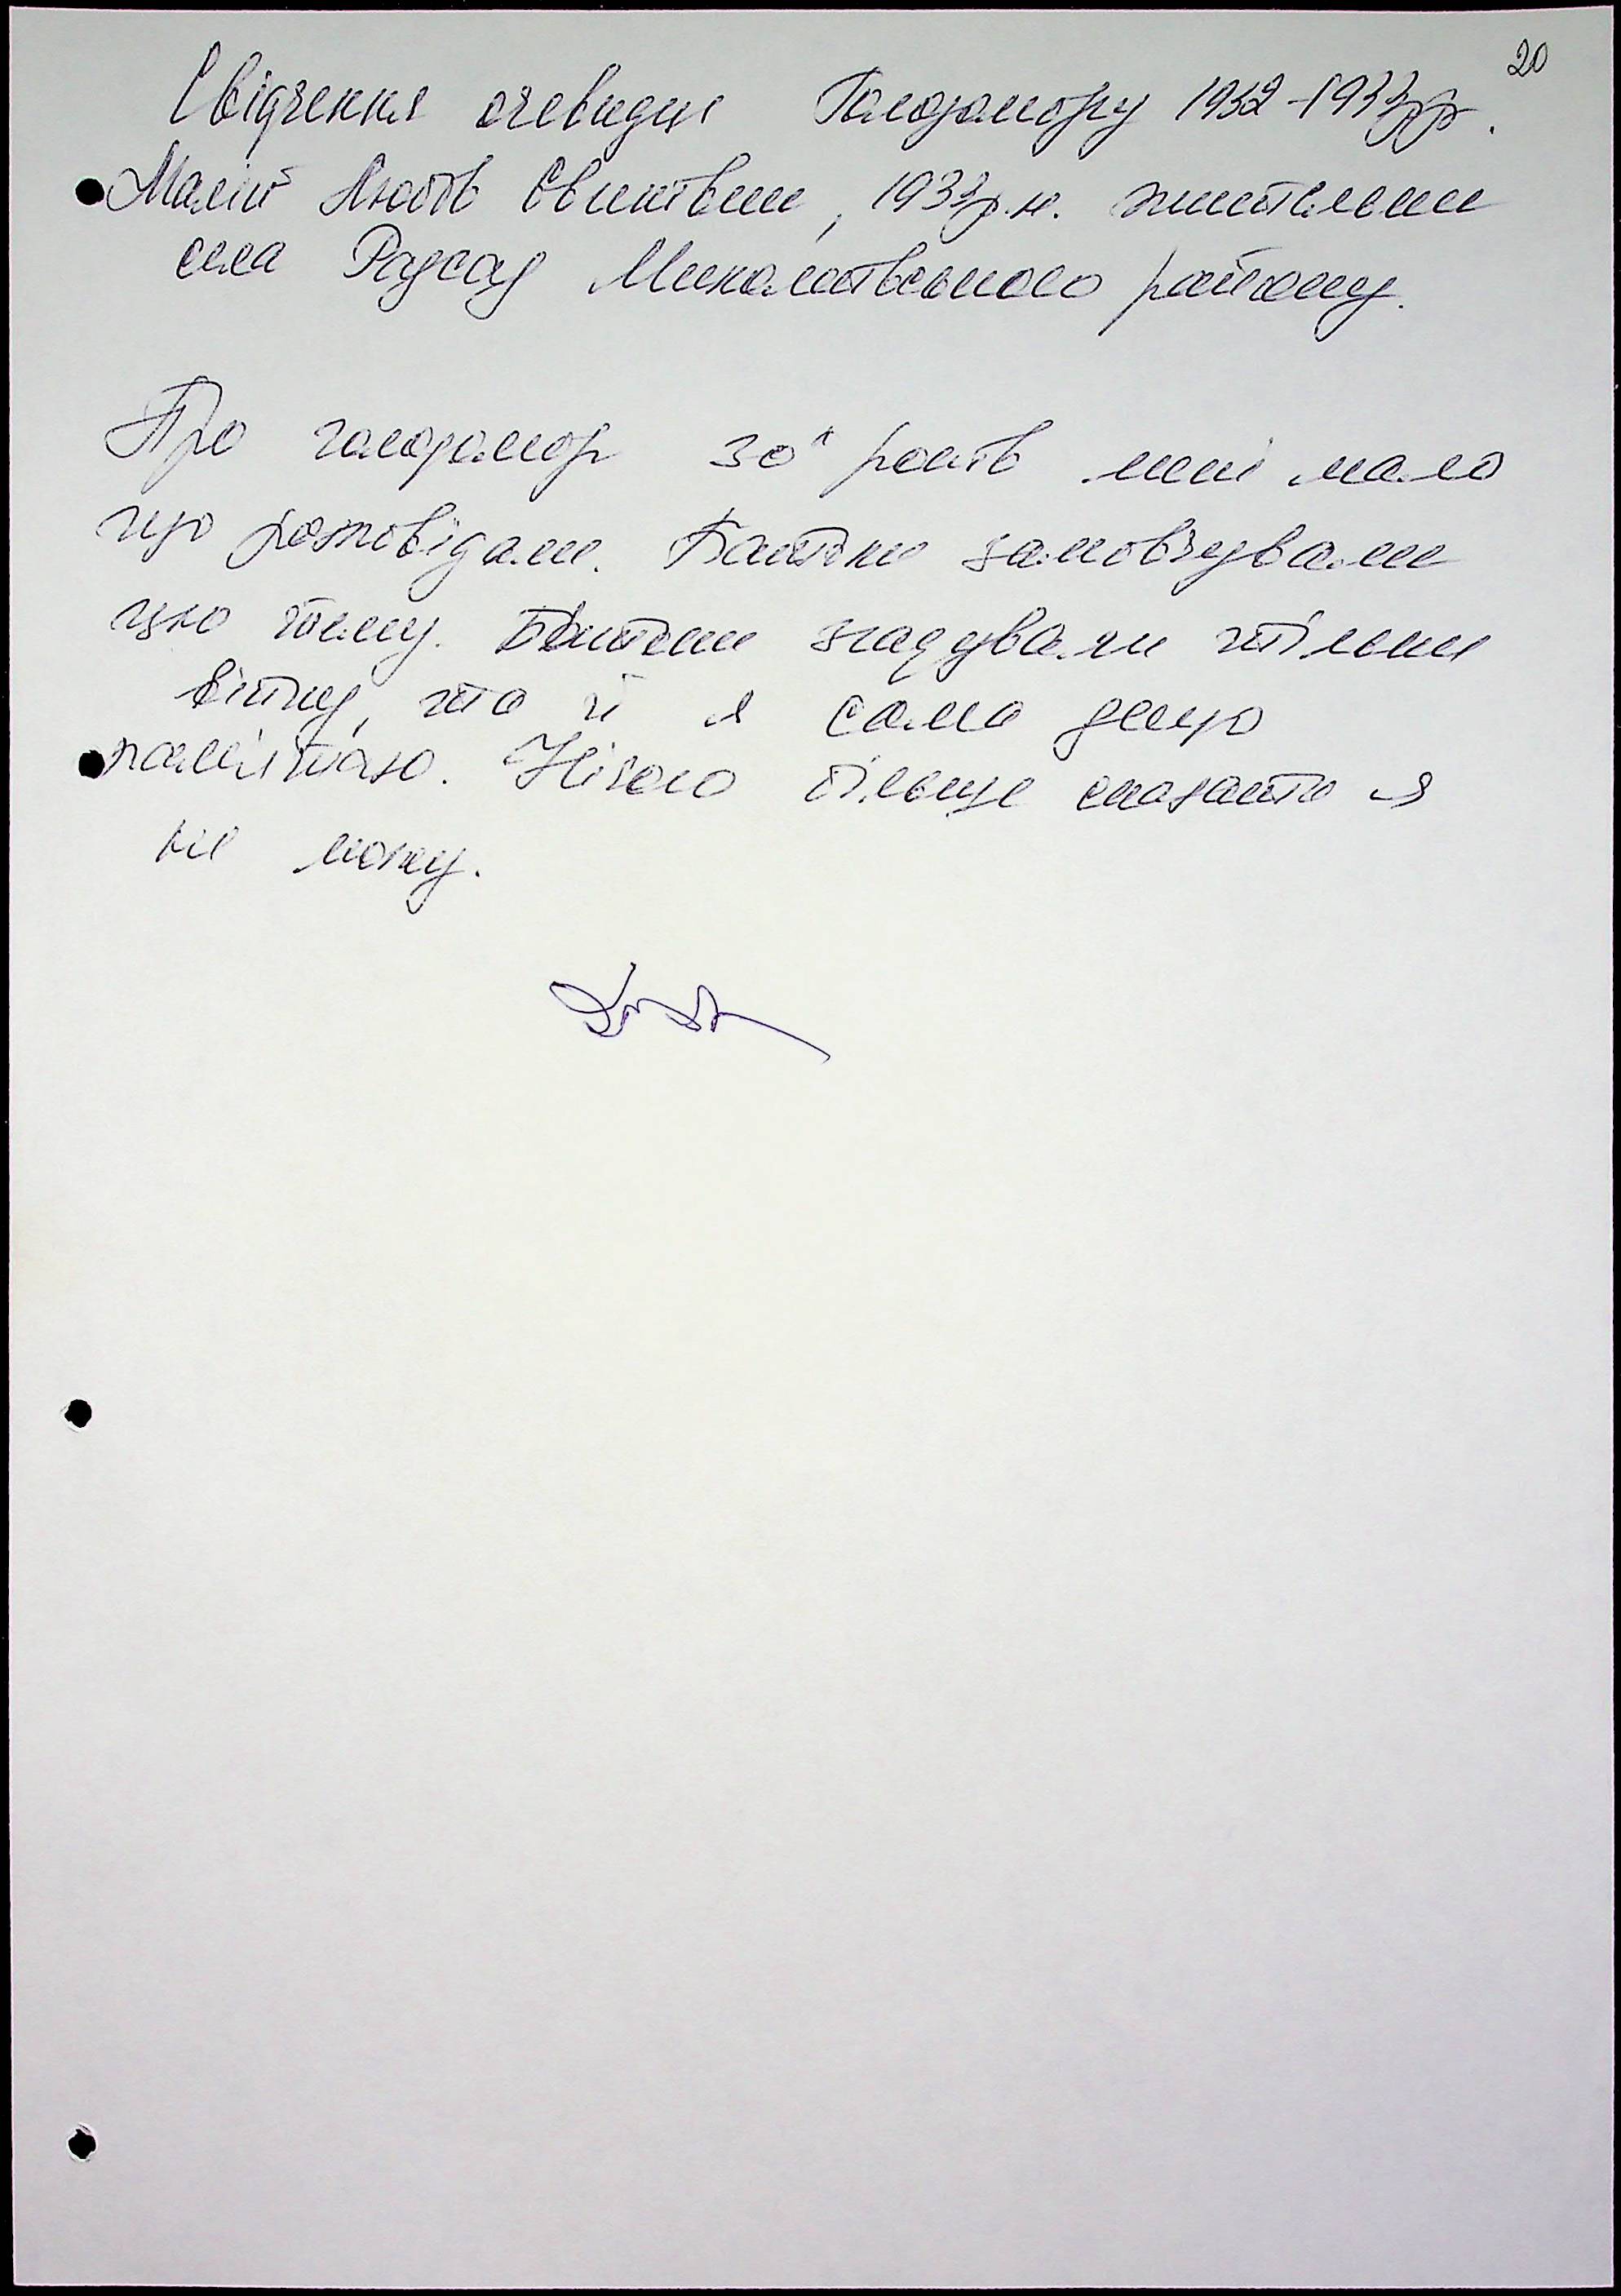 20
Свідчення очевидця Голодомору 1932-1933рр.
Малій Любов Овинтівни, 1933р.н. жительки
села Радсад Миколаївського району.
Про голодомор 30х років мені мало
що розповідали. Батьки замовчували
цю тему. згадували тільки
війну, то й я сама дещо
пам'ятаю. Нічого більше сказати я
не можу.